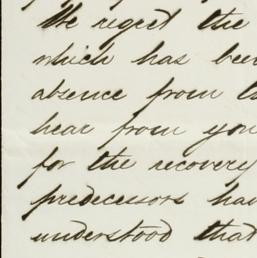 We regret the
which has been
absence from
hear from you
for the recovery
predecessors
understood that